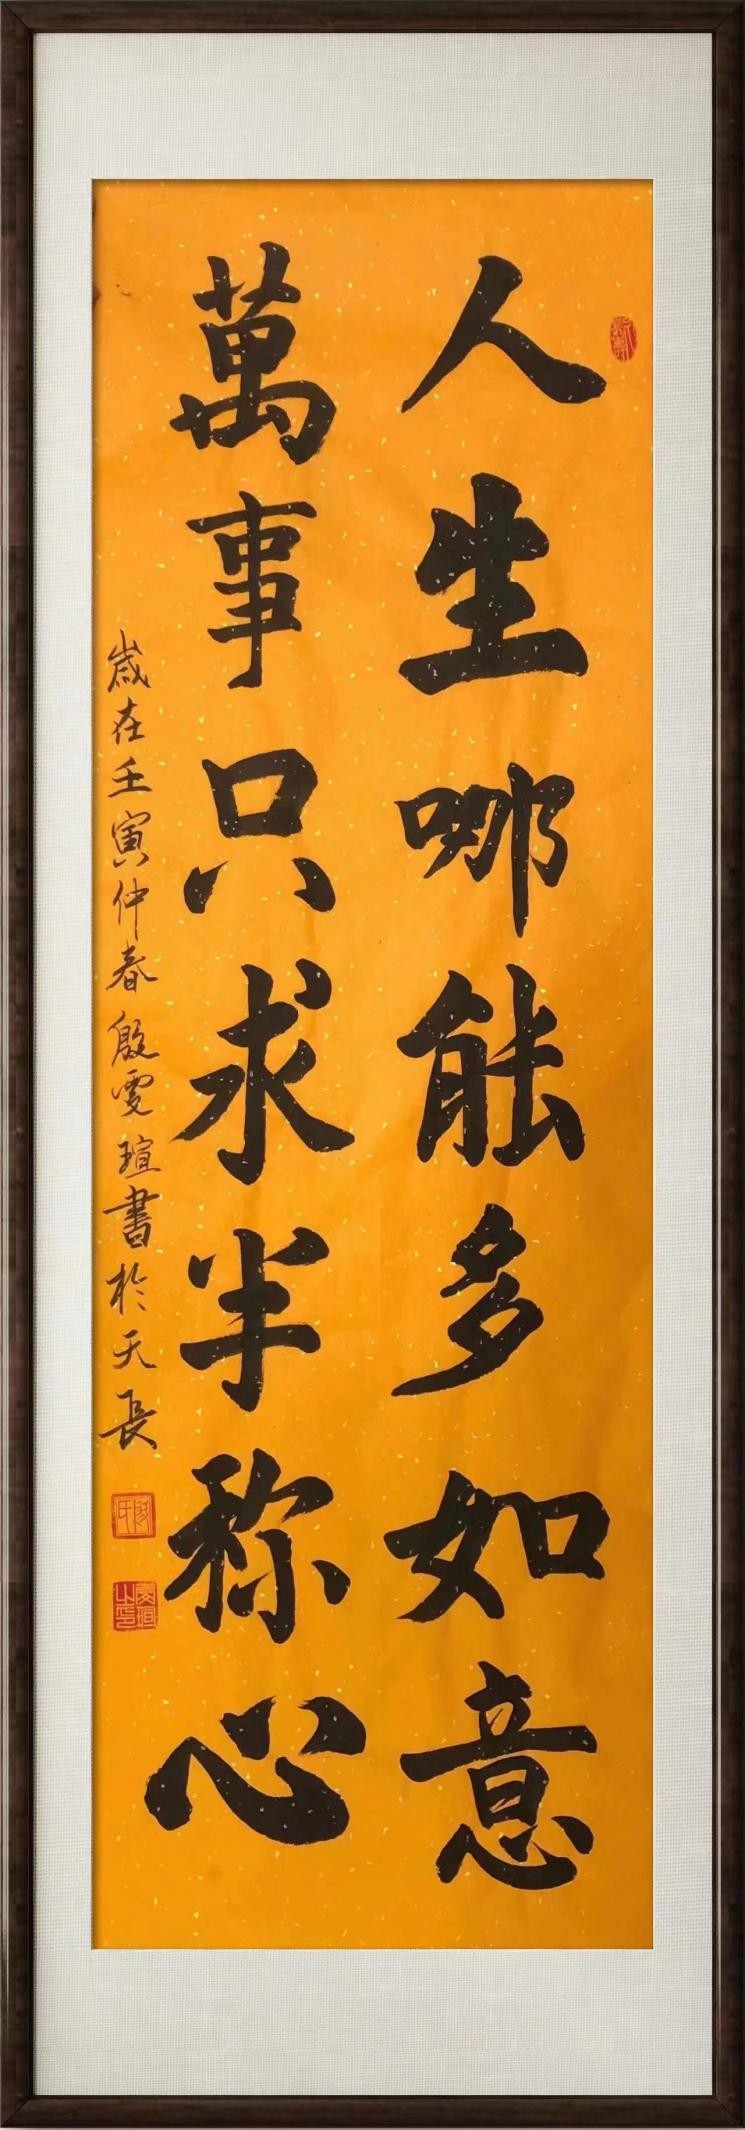 人生哪能多如意
萬事只求半称心
歲在壬寅仲春殷雯瑄書於天長